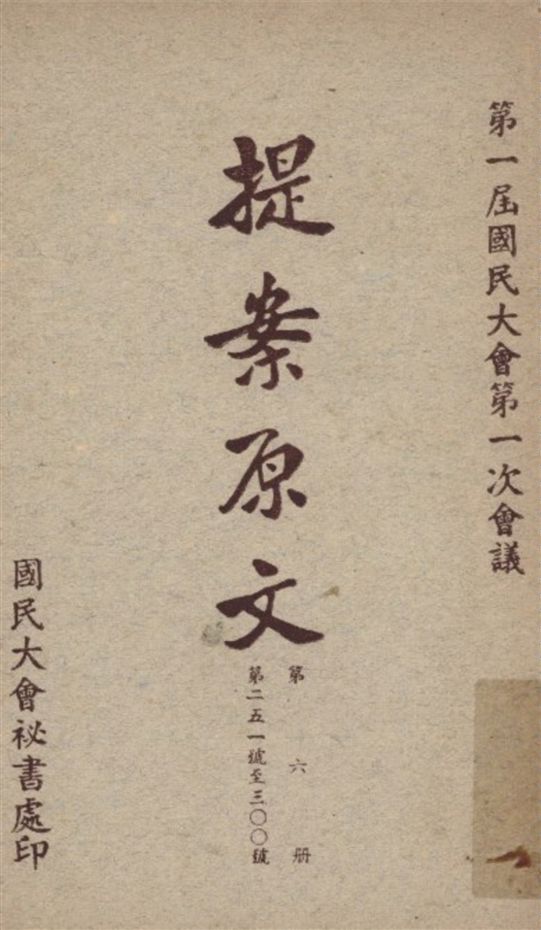 第一屆國民大會第一次會議
提案原文
第六册
第二五一號至三〇〇號
國民大會祕書處印